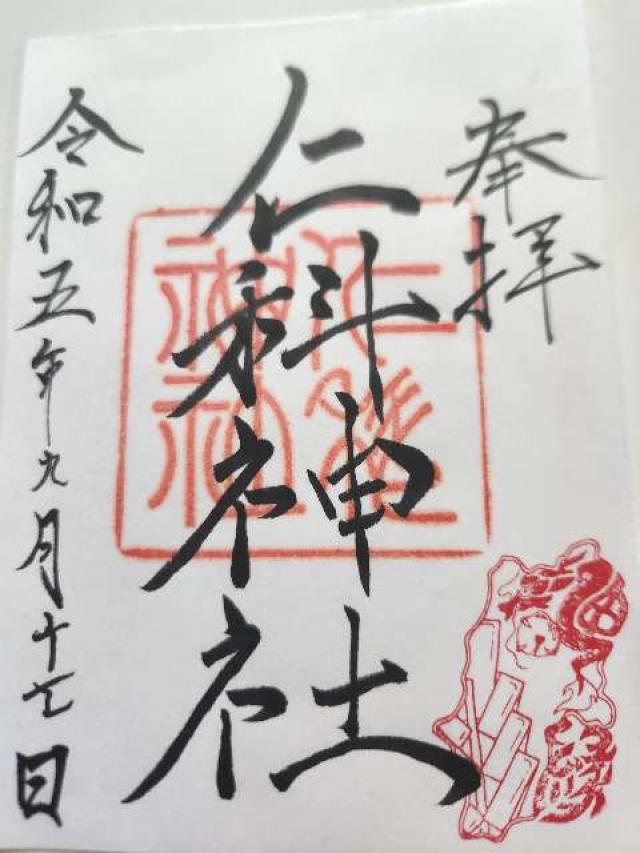 奉拝
仁科神社
令和五年九月十七日